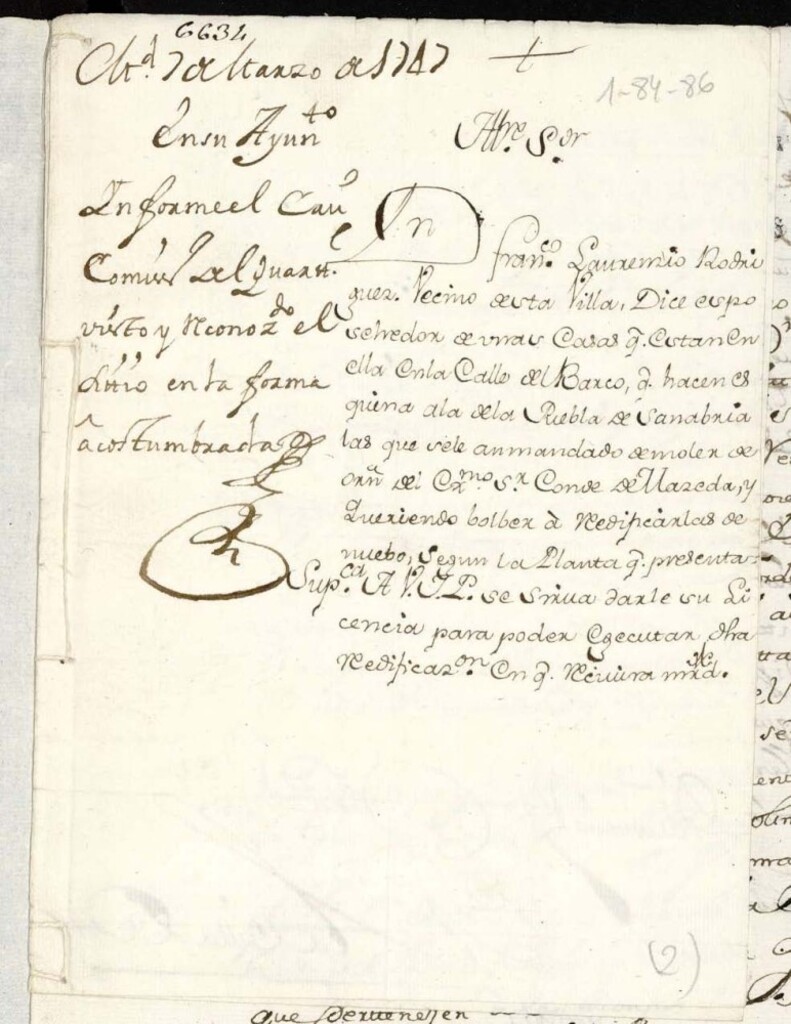 6634
Md.d 7 de Marzo de 1747
1-84-86
En su Ayun.to
Informe el Cau.o
Comiss.o del Quart.l
visto y reconoz.do el
sittio en la forma
acostumbrada
Ill.mo S.or
Fran.co Laurencio Rodri
guez. Vecino desta Villa, Dice es po
sehedor de unas Casas q.e estan En
ella En la Calle del Barco, q.e hacen es
quina a la de la Puebla de Sanabria
las que se le an mandado demoler de
orn del Ex.mo S.r Conde de Mazeda, y
queriendo bolber à Redificarlas de
nuebo, segun la Planta q.e presenta
Sup.ca A V.I.P. se sirva darle su Li
cencia para poder Egecutar dha
Redificaz.on En q.e Recivira mrd.
(2)
que pertenezen